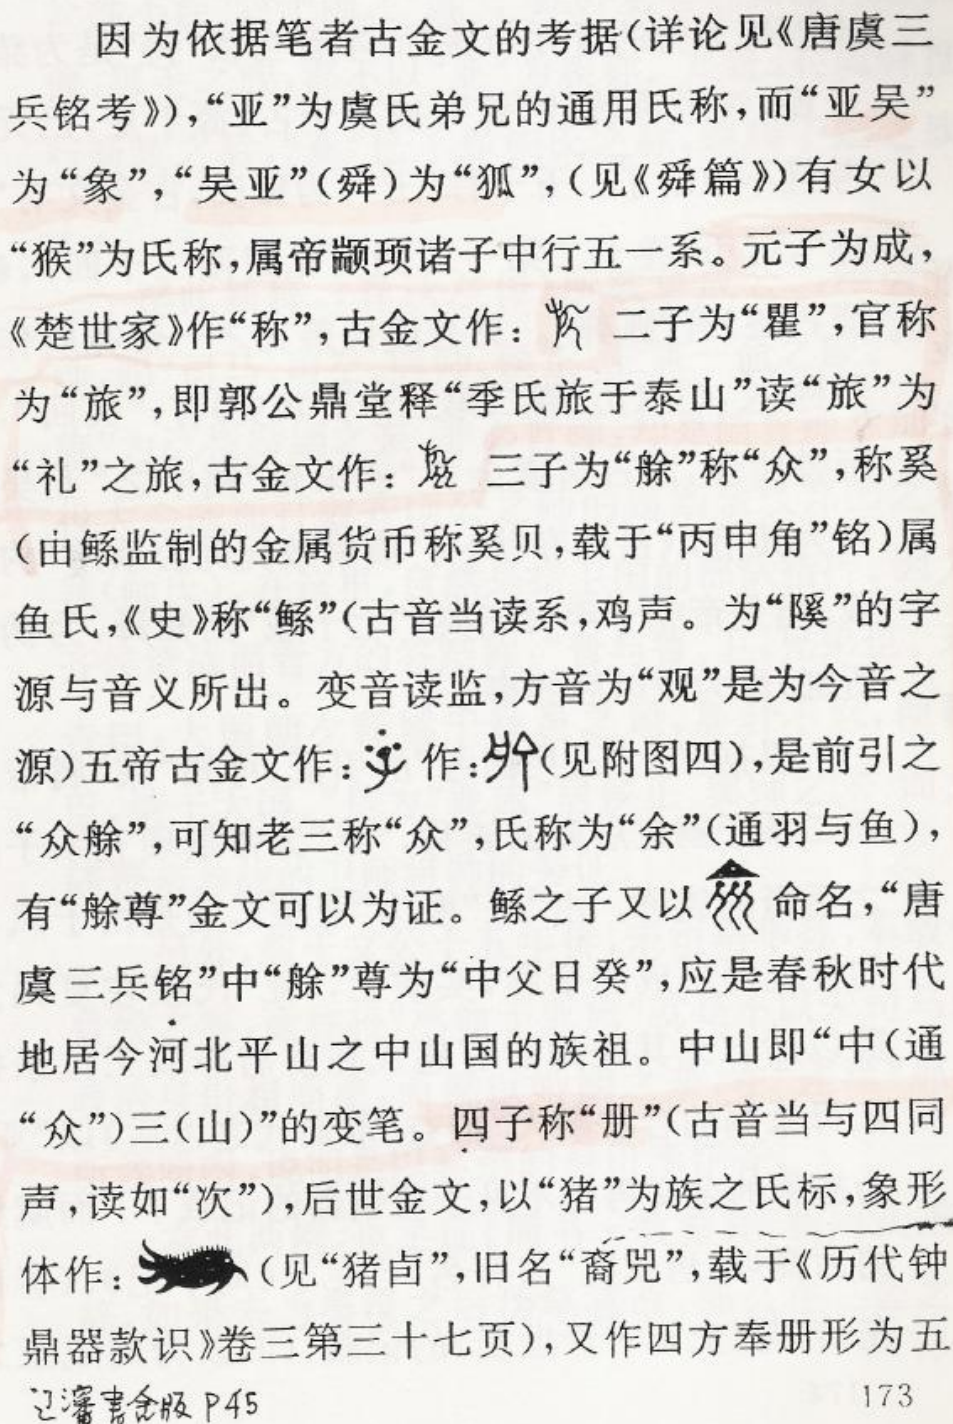 因为依据笔者古金文的考据(详论见《唐虞三
兵铭考》),“亚”为虞氏弟兄的通用氏称,而“亚吴”
为“象”,“吴亚”(舜)为“狐”,(见《舜篇》)有女以
“猴”为氏称,属帝颛顼诸子中行五一系。元子为成,
《楚世家》作“称”,古金文作: 二子为“瞿”,官称
为“旅”,即郭公鼎堂释“季氏旅于泰山”读“旅”为
“礼”之旅,古金文作: 三子为“艅”称“众”,称奚
(由鲧监制的金属货币称奚贝,载于“丙申角”铭)属
鱼氏,《史》称“鲧”(古音当读系,鸡声。为“隩”的字
源与音义所出。变音读监,方音为“观”是为今音之
源)五帝古金文作: 作:(见附图四),是前引之
“众艅”,可知老三称“众”,氏称为“余”(通羽与鱼),
有“艅尊”金文可以为证。鲧之子又以 命名,“唐
虞三兵铭”中“艅”尊为“中父日癸”,应是春秋时代
地居今河北平山之中山国的族祖。中山即“中(通
“众”)三(山)”的变笔。四子称“册”(古音当与四同
声,读如“次”),后世金文,以“猪”为族之氏标,象形
体作: (见“猪卣”,旧名“裔兕”,载于《历代钟
鼎器款识》卷三第三十七页),又作四方奉册形为五
辽瀋書舍版 P45
173